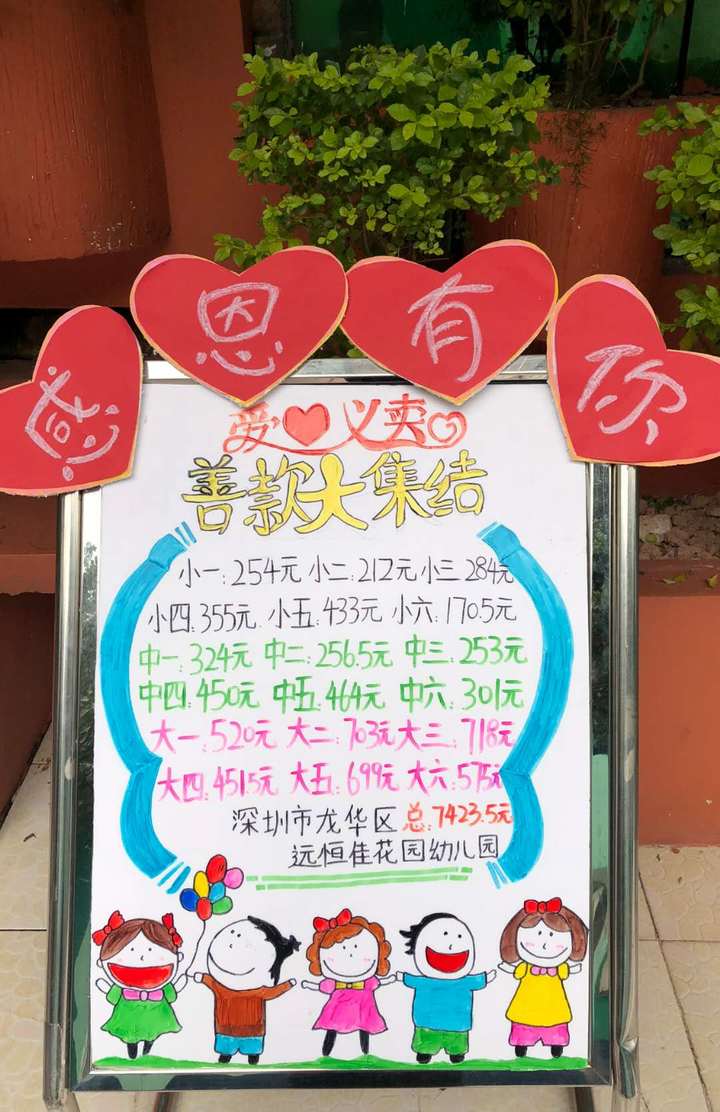 感恩有你
爱心义卖
善款大集结
小一:254元 小二:212元 小三:284元
小四:355元 小五:433元 小六:170.5元
中一:324元 中二:256.5元 中三:253元
中四:450元 中五:464元 中六:301元
大一:520元 大二:703元 大三:718元
大四:451.5元 大五:699元 大六:575元
深圳市龙华区 总:7423.5元
远恒佳花园幼儿园